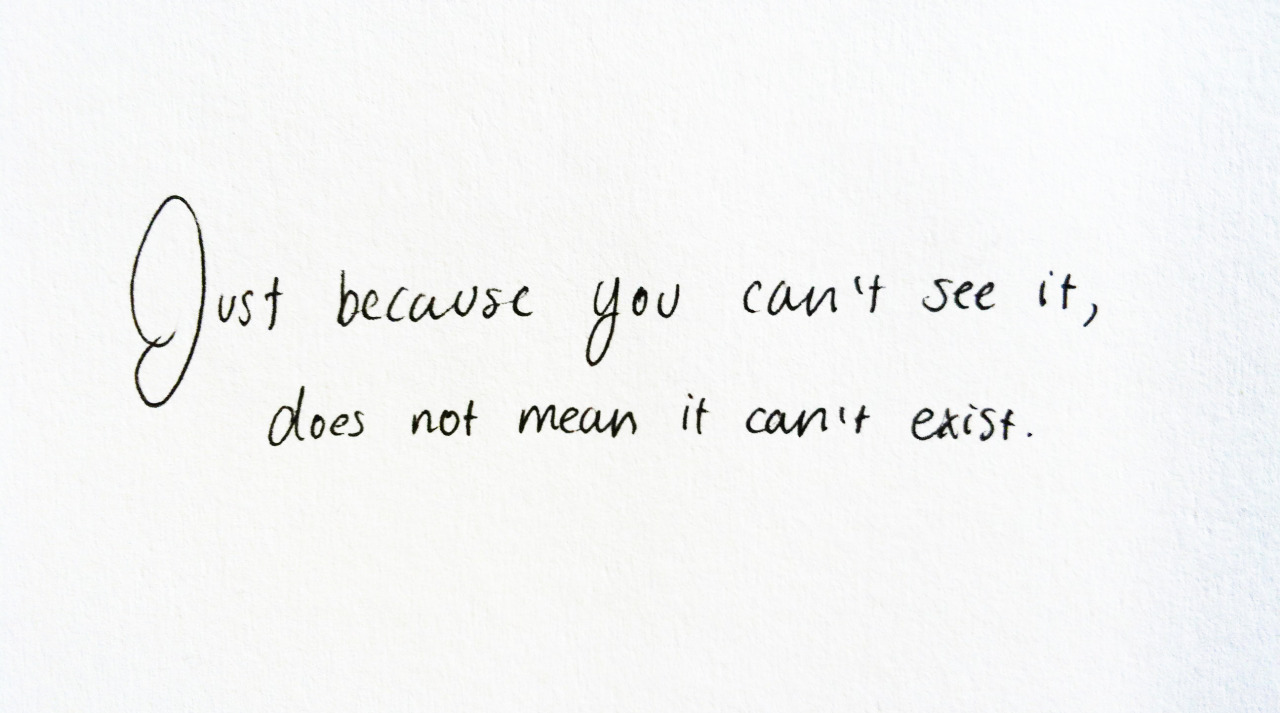 Just because you can't see it,
does not mean it can't exist.